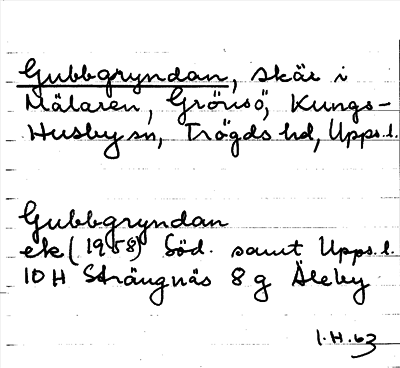 Gubbgryndan, skär i
Mälaren, Grönsö, Kungs-
Husby sn, Trögds hd, Upps.l.
Gubbgryndan
ek (1958) Söd. samt Upps.l.
10H Strängnäs 8g Äleby
1.H.63